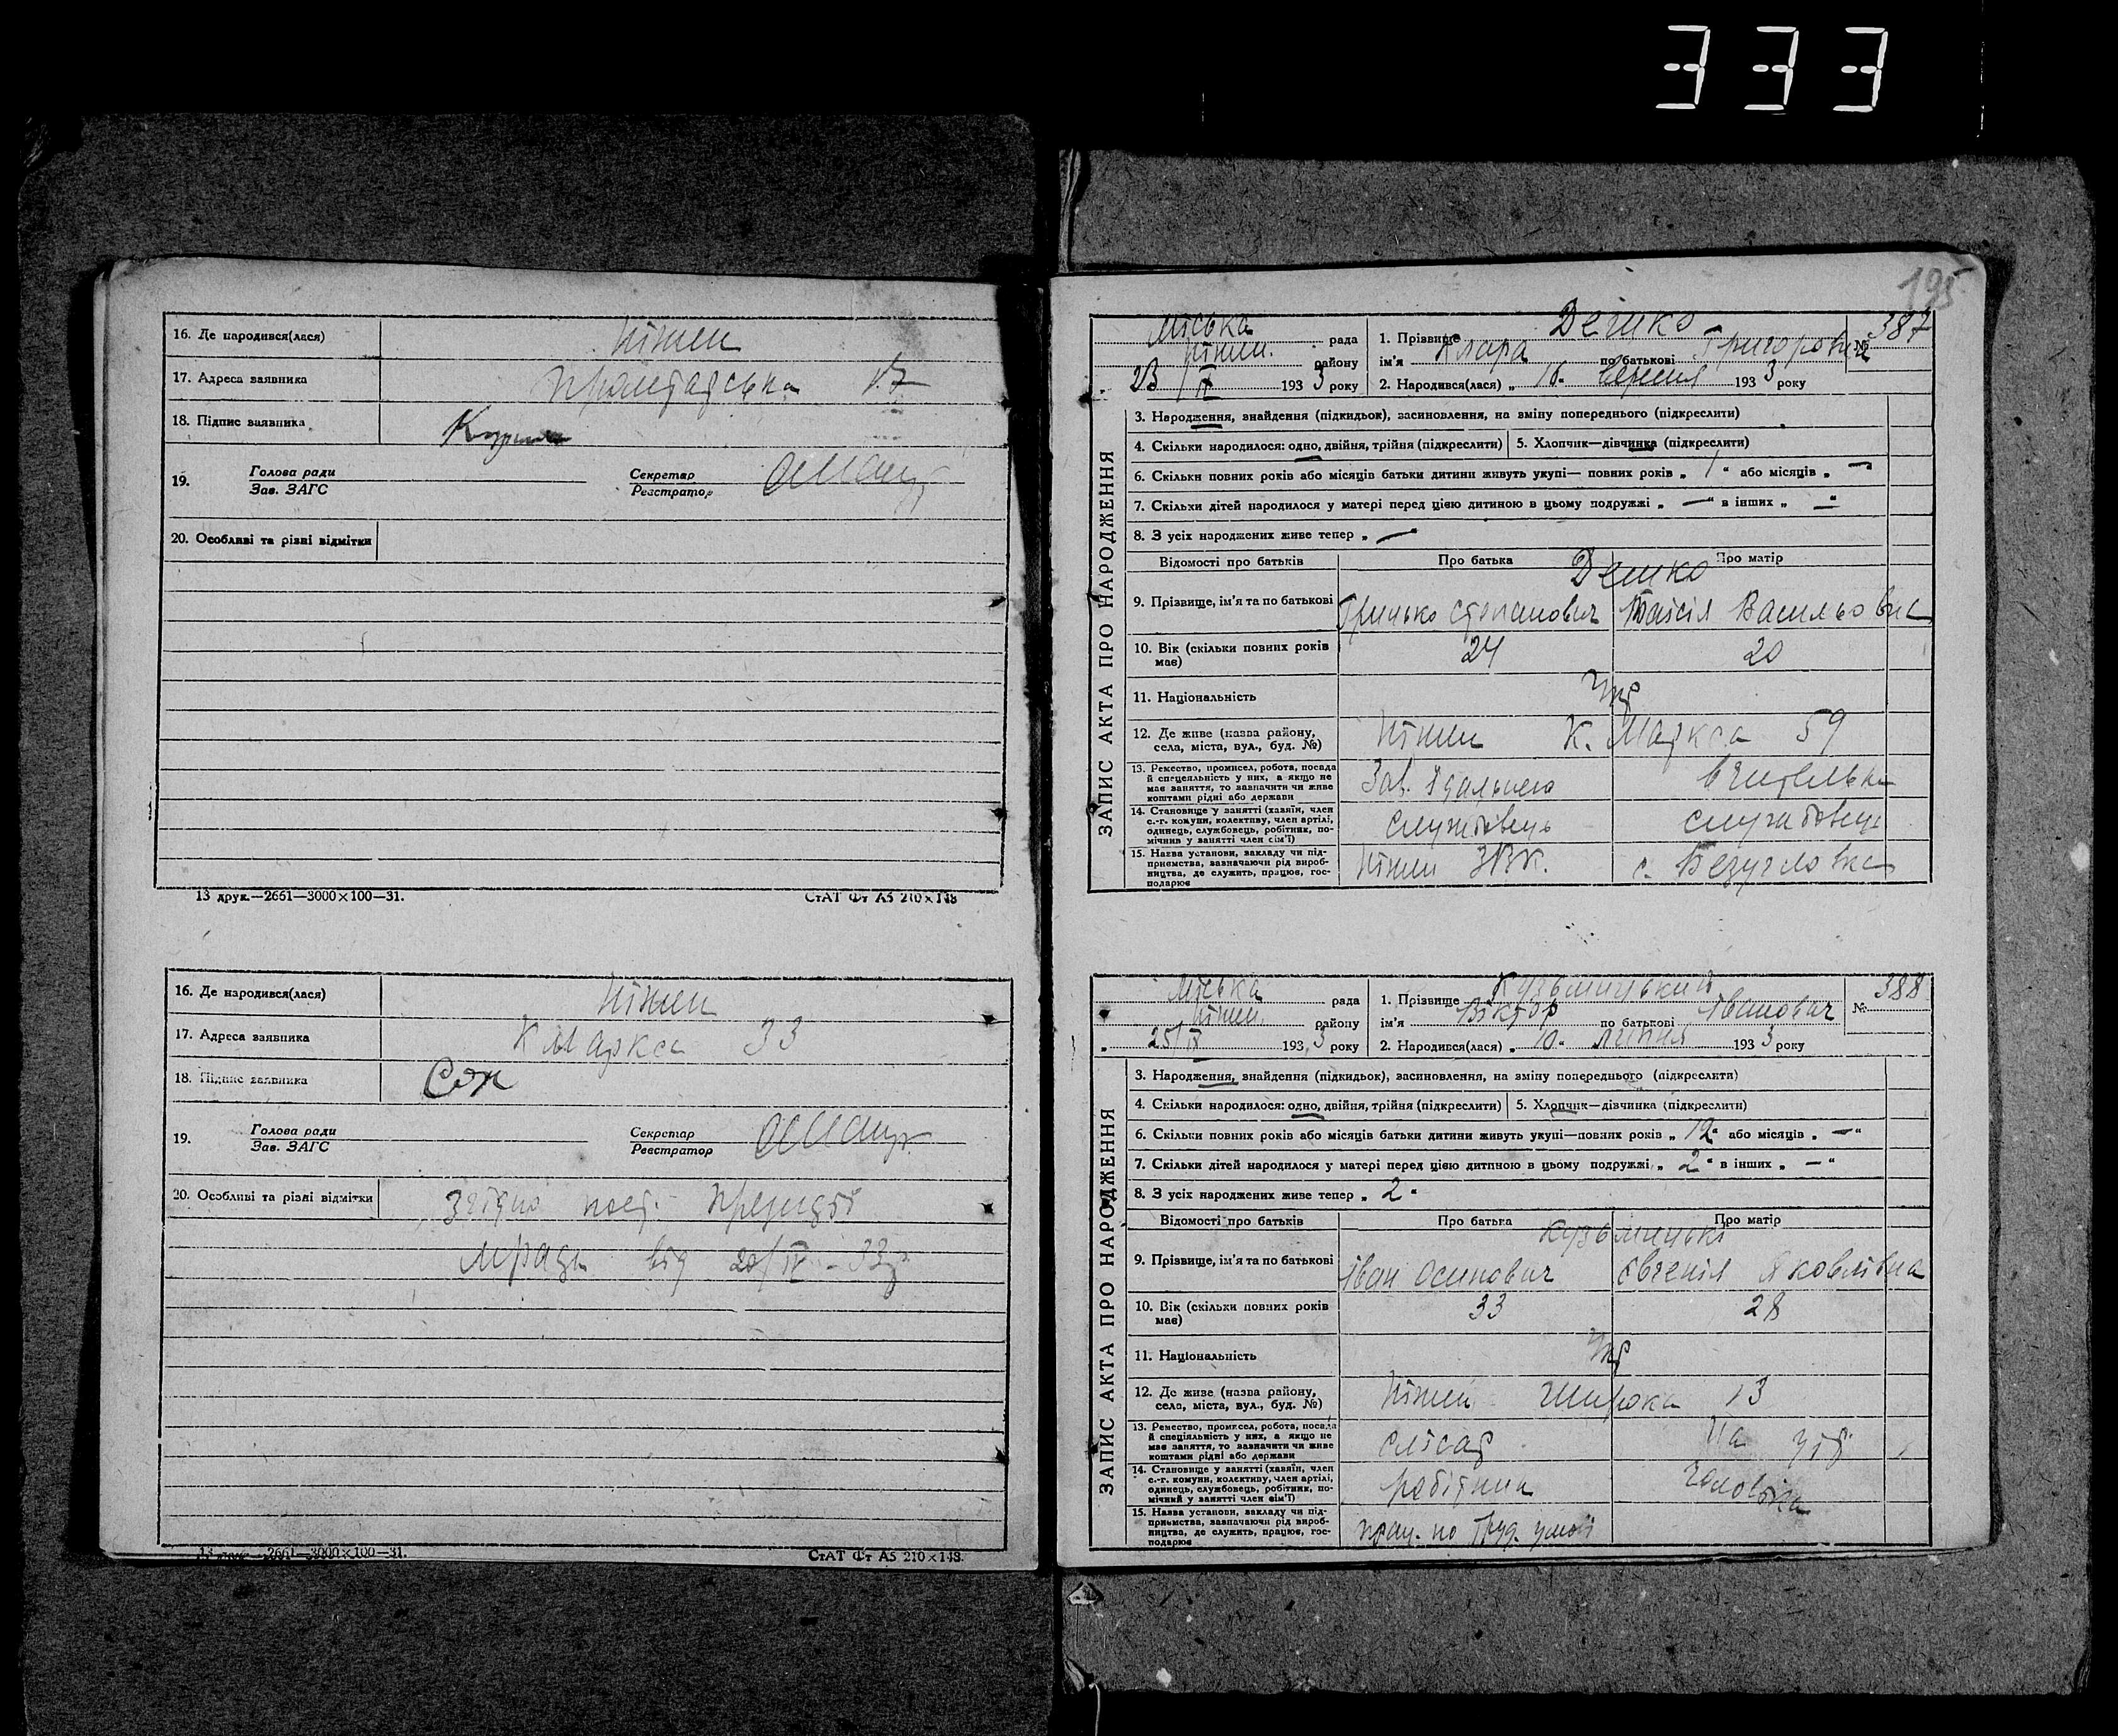 333
16. Де народився(лася) Ніжин
17. Адреса заявника 17
18. Підпис заявника
19. Голова ради
Зав. ЗАГС
Секретар
Реєстратор
20. Особливі та різні відмітки
13 друк.—2661—3000×100—31. СтАТ Фт А5 210×148
16. Де народився(лася) Ніжин
17. Адреса заявника К Маркса 33
18. Підпис заявника
19. Голова ради
Зав. ЗАГС
Секретар
Реєстратор
20. Особливі та різні відмітки Згідно пост. Президії
м/ради від 20/IV-33р
13 друк.—2661—3000×100—31. СтАТ Фт А5 210×148.
195
ЗАПИС АКТА ПРО НАРОДЖЕННЯ
Міська рада
Ніжин. району
23/IX 1933 року
1. Прізвище Дешко
ім'я Клара по батькові Григоровна
№ 387
2. Народився(лася) „ 16 " вересня 1933 року
3. Народження, знайдення (підкидьок), засиновлення, на зміну попереднього (підкреслити)
4. Скільки народилося: одно, двійня, трійня (підкреслити) 5. Хлопчик—дівчинка (підкреслити)
6. Скільки повних років або місяців батьки дитини живуть укупі— повних років „ 1 " або місяців „ —
7. Скільки дітей народилося у матері перед цією дитиною в цьому подружжі „ — " в інших „ — "
8. З усіх народжених живе тепер „ —
Відомості про батьків Про батька Про матір
Дешко
9. Прізвище, ім'я та по батькові Грицько Степанович Таїсія Васильовна
10. Вік (скільки повних років має) 24 20
11. Національність Укр
12. Де живе (назва району, села, міста, вул., буд. №) Ніжин К. Маркса 59
13. Ремество, промисел, робота, посада й спеціяльність у них, а якщо не має заняття, то зазначити чи живе коштами рідні або держави Зав. їдальнею вчителька
14. Становище у занятті (хазяїн, член с.-г. комуни, колективу, член артілі, одинець, службовець, робітник, помічник у занятті член сім'ї) службовець службовець
15. Назва установи, закладу чи підприємства, зазначаючи рід виробництва, де служить, працює, господарює Ніжин ЗВК. с. Безугловка
ЗАПИС АКТА ПРО НАРОДЖЕННЯ
Міська рада
Ніжин. району
„ 25/IX 1933 року
1. Прізвище Кузьмицький
ім'я Віктор по батькові Іванович
№ 388
2. Народився(лася) „ 10 " липня 1933 року
3. Народження, знайдення (підкидьок), засиновлення, на зміну попереднього (підкреслити)
4. Скільки народилося: одно, двійня, трійня (підкреслити) 5. Хлопчик—дівчинка (підкреслити)
6. Скільки повних років або місяців батьки дитини живуть укупі—повних років „ 12 " або місяців „ — "
7. Скільки дітей народилося у матері перед цією дитиною в цьому подружжі „ 2 " в інших „ — "
8. З усіх народжених живе тепер „ 2 "
Відомості про батьків Про батька Про матір
Кузьмицькі
9. Прізвище, ім'я та по батькові Іван Осипович Євгенія Яковлівна
10. Вік (скільки повних років має) 33 28
11. Національність Укр
12. Де живе (назва району, села, міста, вул., буд. №) Ніжин Широка 13
13. Ремество, промисел, робота, посада й спеціяльність у них, а якщо не має заняття, то зазначити чи живе коштами рідні або держави слюсар На утр.
14. Становище у занятті (хазяїн, член с.-г. комуни, колективу, член артілі, одинець, службовець, робітник, помічний у занятті член сім'ї) робітник чоловіка
15. Назва установи, закладу чи підприємства, зазначаючи рід виробництва, де служить, працює, господарює прац. по Труд.